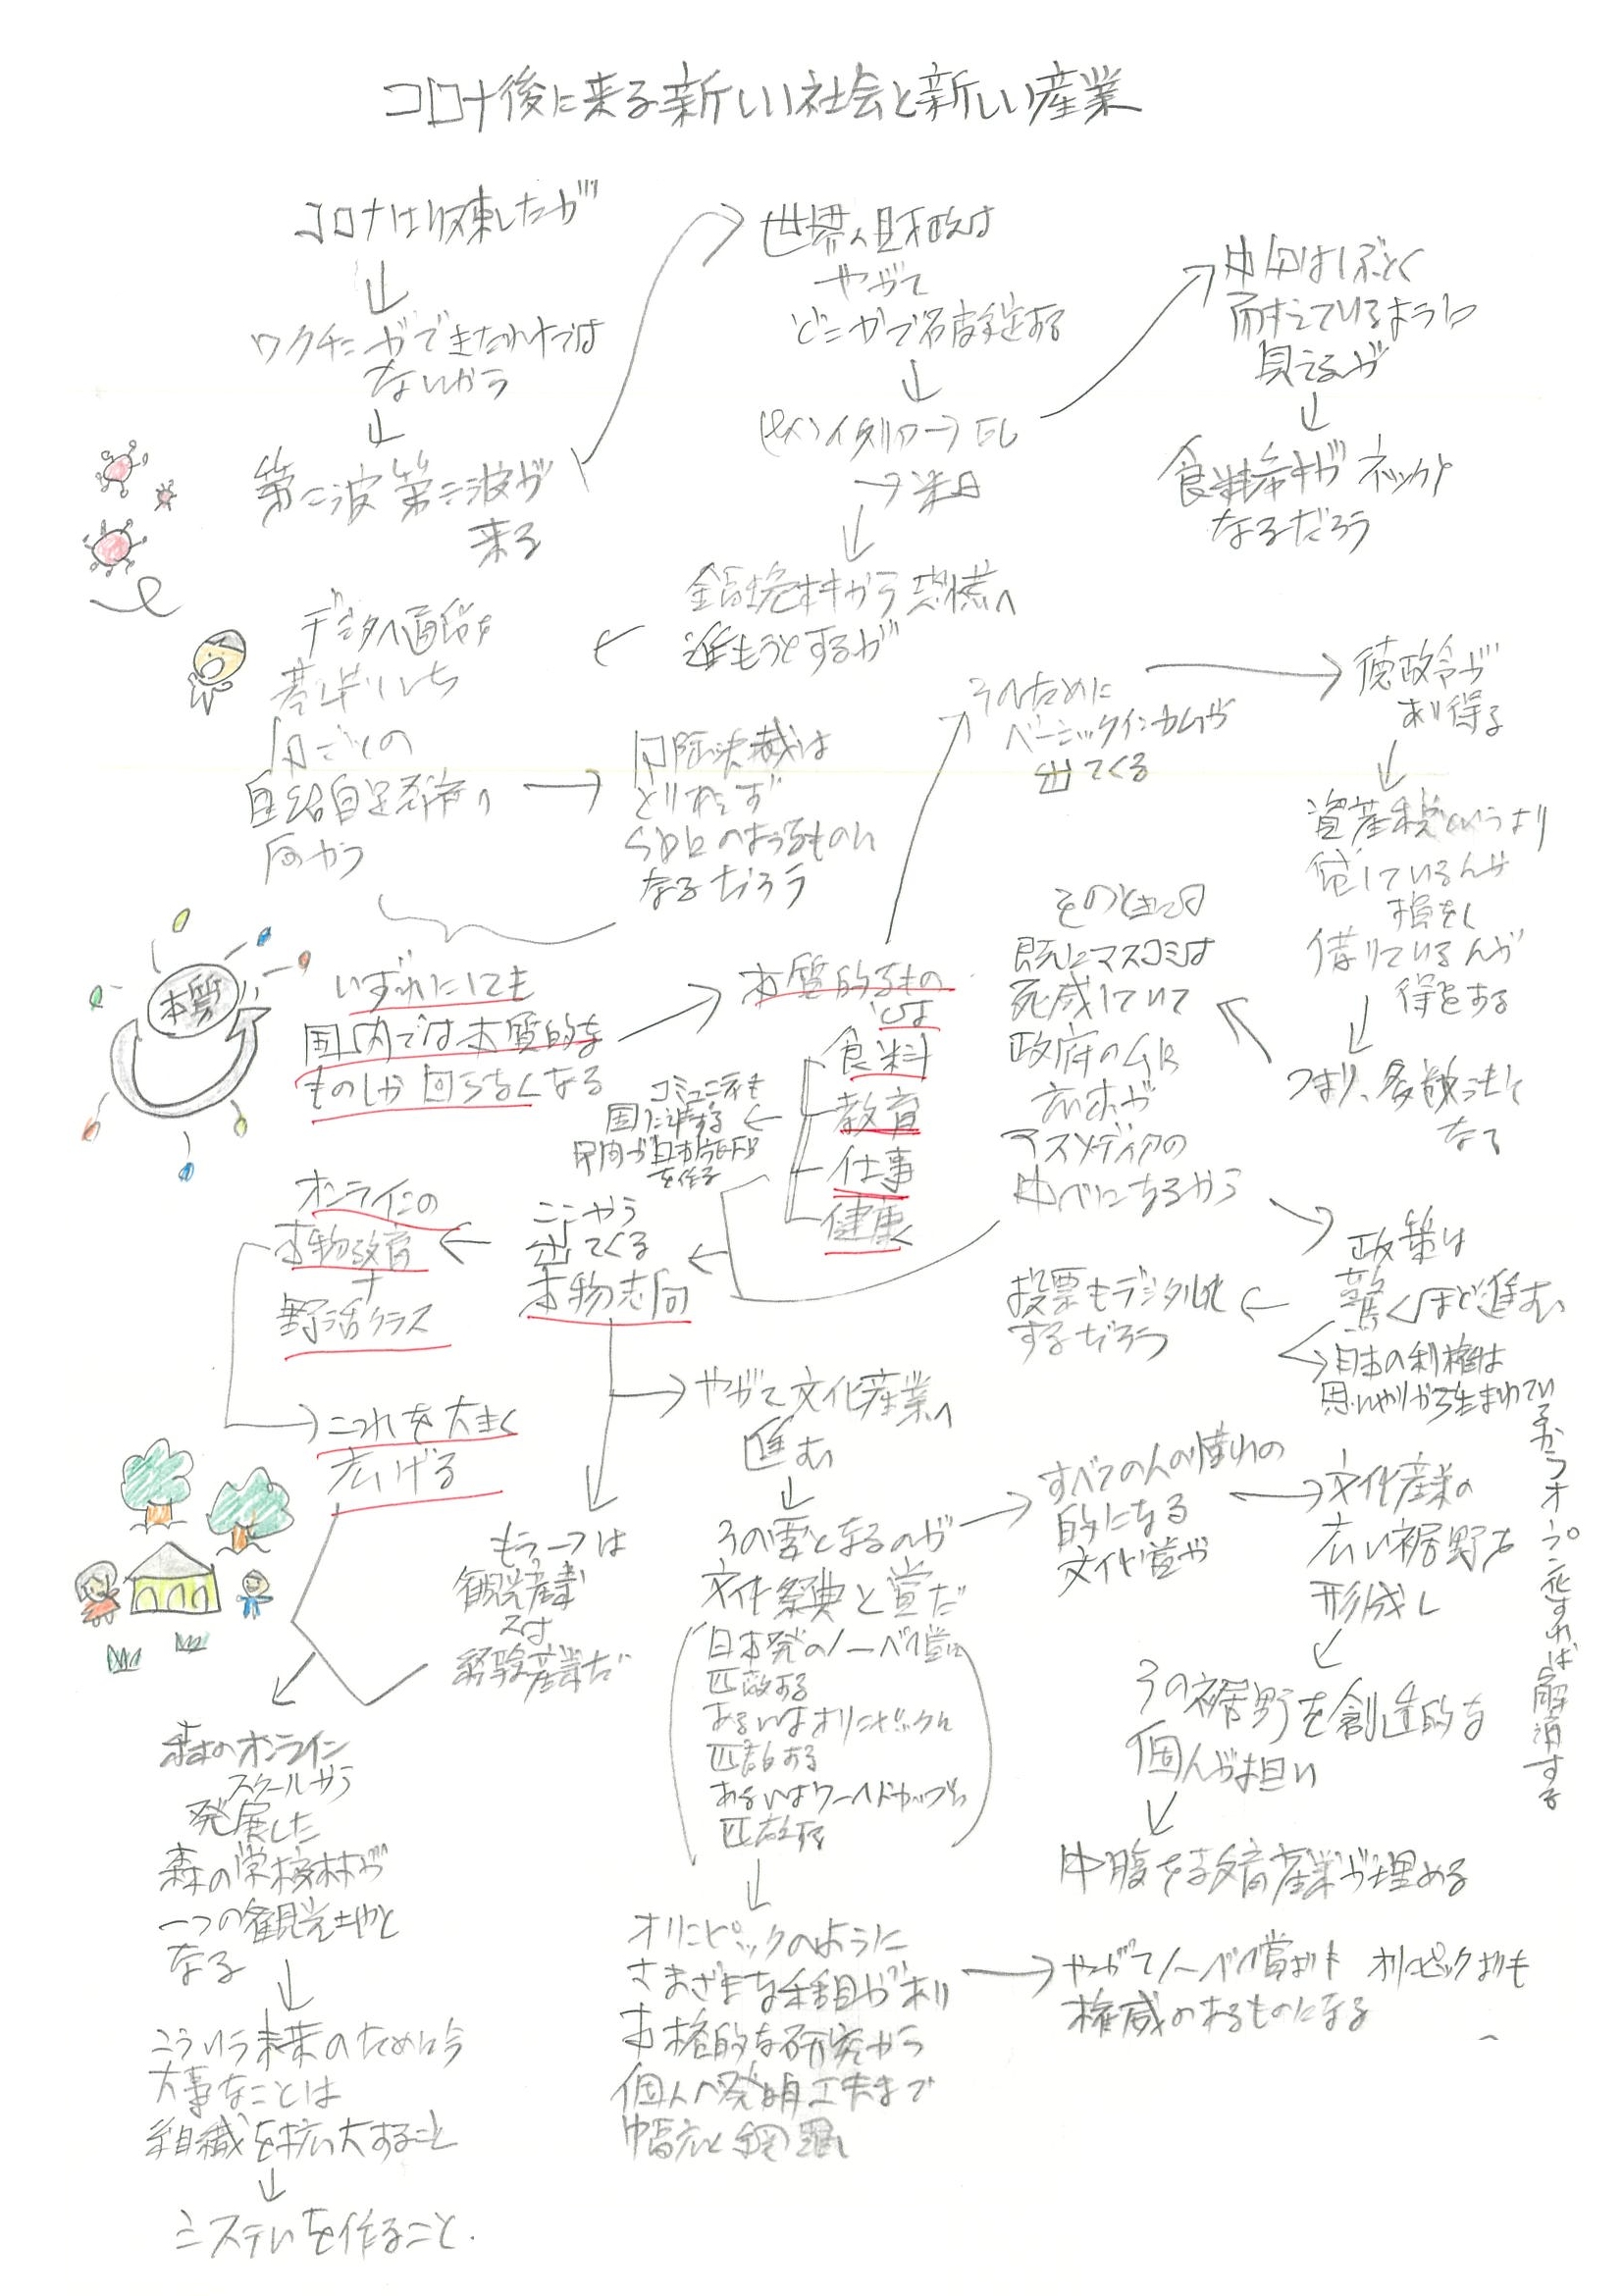 コロナ後に来る新しい社会と新しい産業
コロナは収束したが
ワクチンができたわけでは
ないから
第二波第三波が
来る
世界の財政は
やがて
どこかで破綻する
→米
中国はしぶとく
耐えているように
見えるが
食料奉料がネックと
なるだろう
金融破綻から恐慌へ
進もうとするが
デジタル通貨を
基準にした
国ごとの
自給自足経済へ
向かう
国際決裁は
とりあえず
SDRのようなものに
なるだろう
いずれにしても
国内では本質的な
ものしか回らなくなる
本質
本質的なもの
とは
食料
教育
仕事
健康
コミュニティも
国に準ずる
そのために
ベーシックインカムが
出てくる
徳政令が
あり得る
資産税というより
貸している人が
損をし
借りている人が
得をする
つまり、多数決で
なる
そのときには
既にマスコミは
死滅していて
政府のHR
広報が
マスメディアの
中心になるから
政策は
驚くほど進む
投票もデジタル化
するだろう
日本の利権は
思いやりから生まれているからオープン化すれば解消する
ここから
出てくる
本物志向
オンラインの
本物教育
＋
野活クラス
これを大きく
広げる
やがて文化産業へ
進む
その要となるのが
文化祭典と賞だ
日本発のノーベル賞に
匹敵する
あるいはオリンピックに
匹敵する
あるいはワールドカップに
匹敵する
オリンピックのように
さまざまな種目があり
本格的な研究から
個人の発明工夫まで
幅広く網羅し
やがてノーベル賞よりも オリンピックよりも
権威のあるものになる
すべての人の憧れの
的になる
文化賞が
文化産業の
広い裾野を
形成し
その裾野を創造的な
個人が担い
中腹を教育産業が埋める
もう一つは
観光産業
又は
経験産業だ
森のオンライン
スクールから
発展した
森の学校林が
一つの観光地と
なる
こういう未来のために今
大事なことは
組織を拡大すること
システムを作ること.